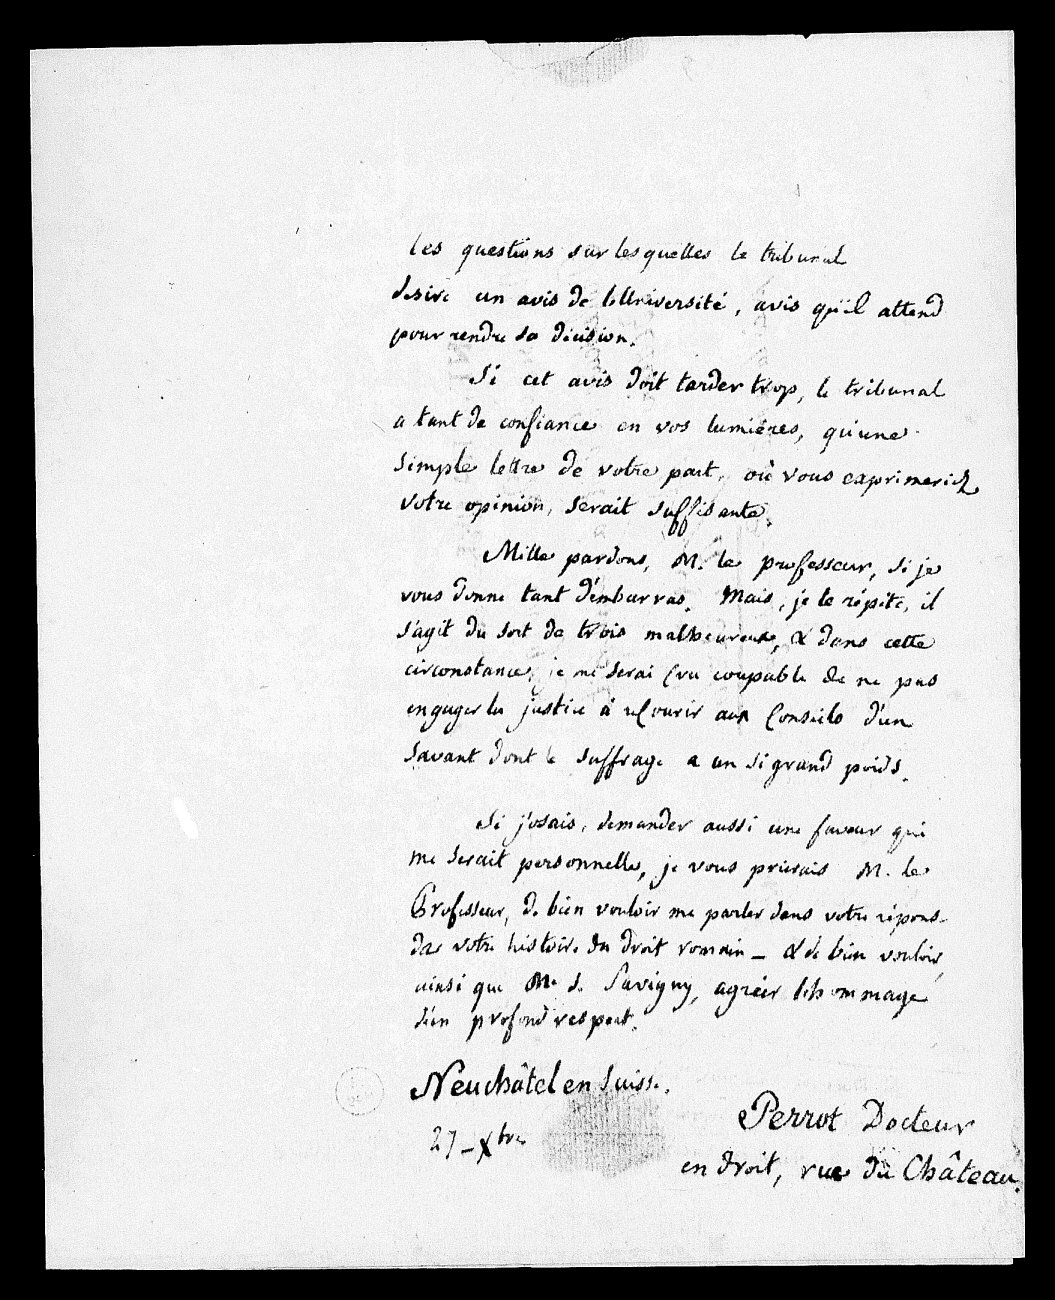 les questions sur lesquelles le tribunal
desire un avis de l'Université, avis qu'il attend
pour rendre sa décision.
Si cet avis doit tarder trop, le tribunal
a tant de confiance en vos lumières, qu'une
simple lettre de votre part, où vous exprimeriez
votre opinion, serait suffisante.
Mille pardons, M. le professeur, si je
vous donne tant d'embarras. Mais, je le répète, il
s'agit du sort de trois malheureux, & dans cette
circonstance, je me serai cru coupable de ne pas
engager la justice à recourir aux Conseils d'un
savant dont le suffrage a un si grand poids.
Si j'osais, demander aussi une faveur qui
me serait personnelle, je vous prierais M. le
Professeur, de bien vouloir me parler dans votre réponse
de votre histoire du droit romain — & de bien vouloir,
ainsi que Me de Savigny, agréer l'hommage
d'un profond respect.
Neuchâtel en Suisse.
27 – Xbre
Perrot Docteur
en droit, rue du Château.